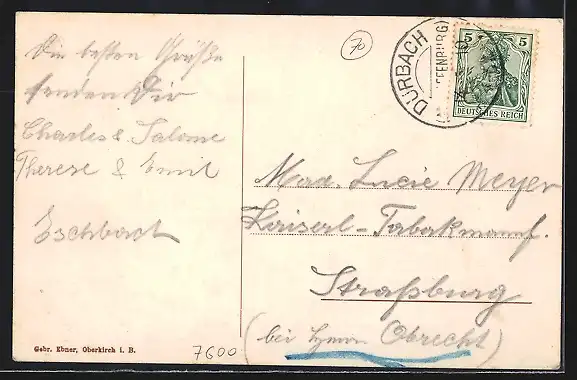 Die besten Grüße
senden Dir
Charles & Salome
Therese & Emil
Eschbach
70
DURBACH
(OFFENBURG)
5 5
DEUTSCHES REICH
Mad. Lucie Meyer
Kaiserl-Tabakmanf.
Straßburg
(bei Herrn Obrecht)
Gebr. Ebner, Oberkirch i. B.
7600